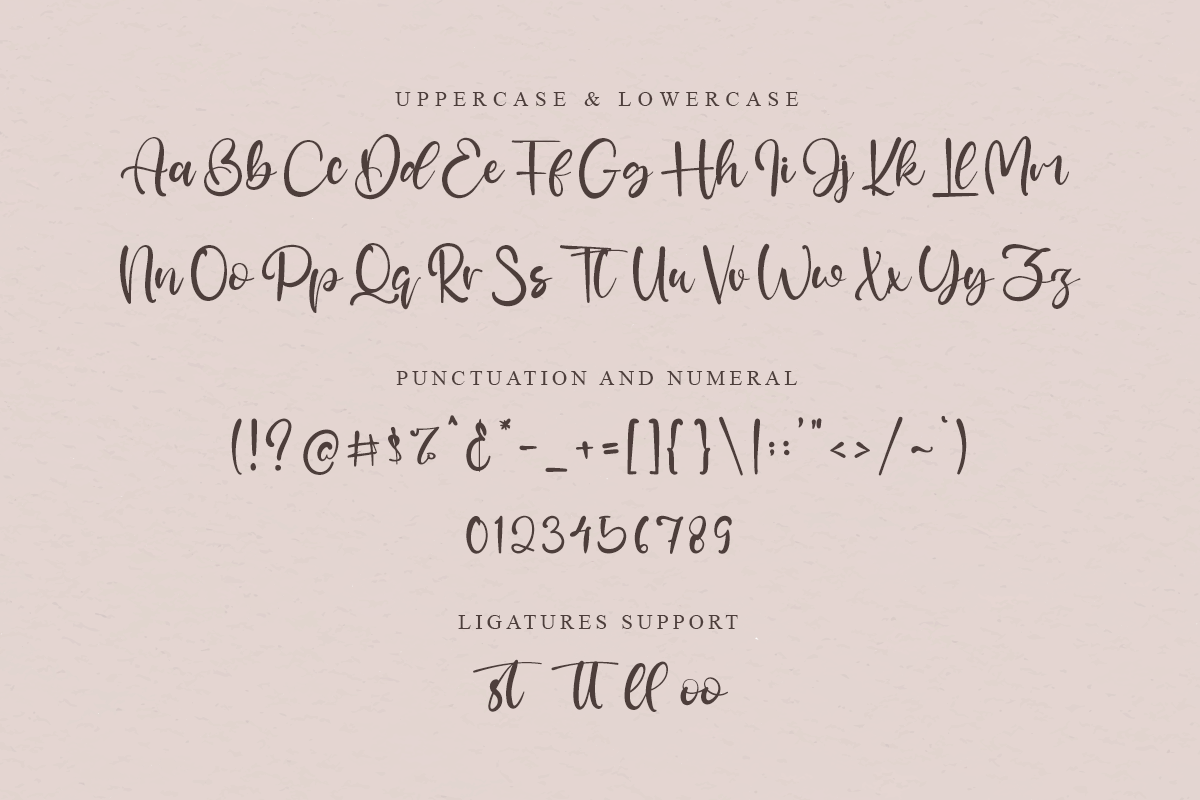 UPPERCASE & LOWERCASE
Aa Bb Cc Dd Ee Ff Gg Hh Ii Jj Kk Ll Mm
Nn Oo Pp Qq Rr Ss Tt Uu Vv Ww Xx Yy Zz
PUNCTUATION AND NUMERAL
(!?@#$%^&*-_+=[]{}\|:;'"<>/~`)
0123456789
LIGATURES SUPPORT
st tt ll oo